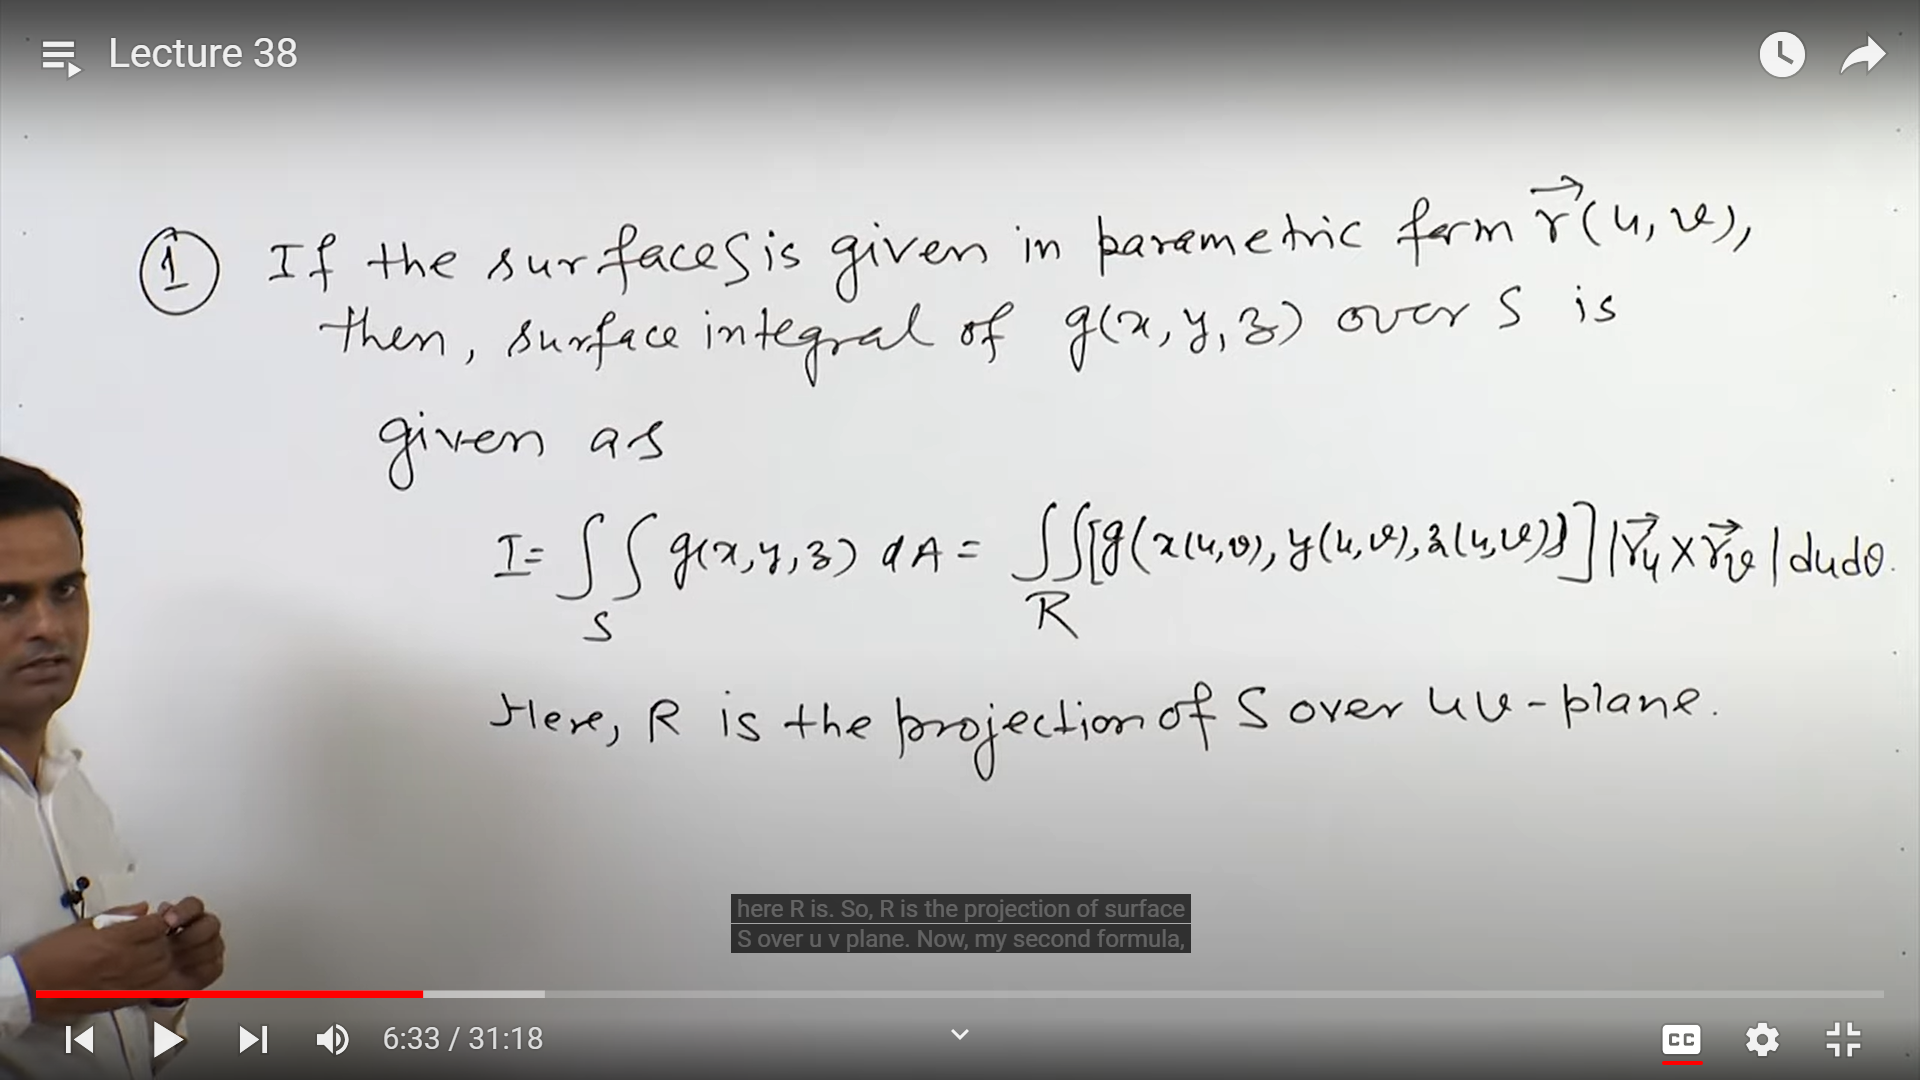 Lecture 38
① If the surface S is given in parametric form r⃗(u, v),
then, surface integral of g(x, y, z) over S is
given as
I = ∫∫_S g(x, y, z) dA = ∫∫_R [g(x(u,v), y(u,v), z(u,v))] |r⃗_u × r⃗_v| du dv.
Here, R is the projection of S over uv-plane.
here R is. So, R is the projection of surface
S over u v plane. Now, my second formula,
6:33 / 31:18
CC